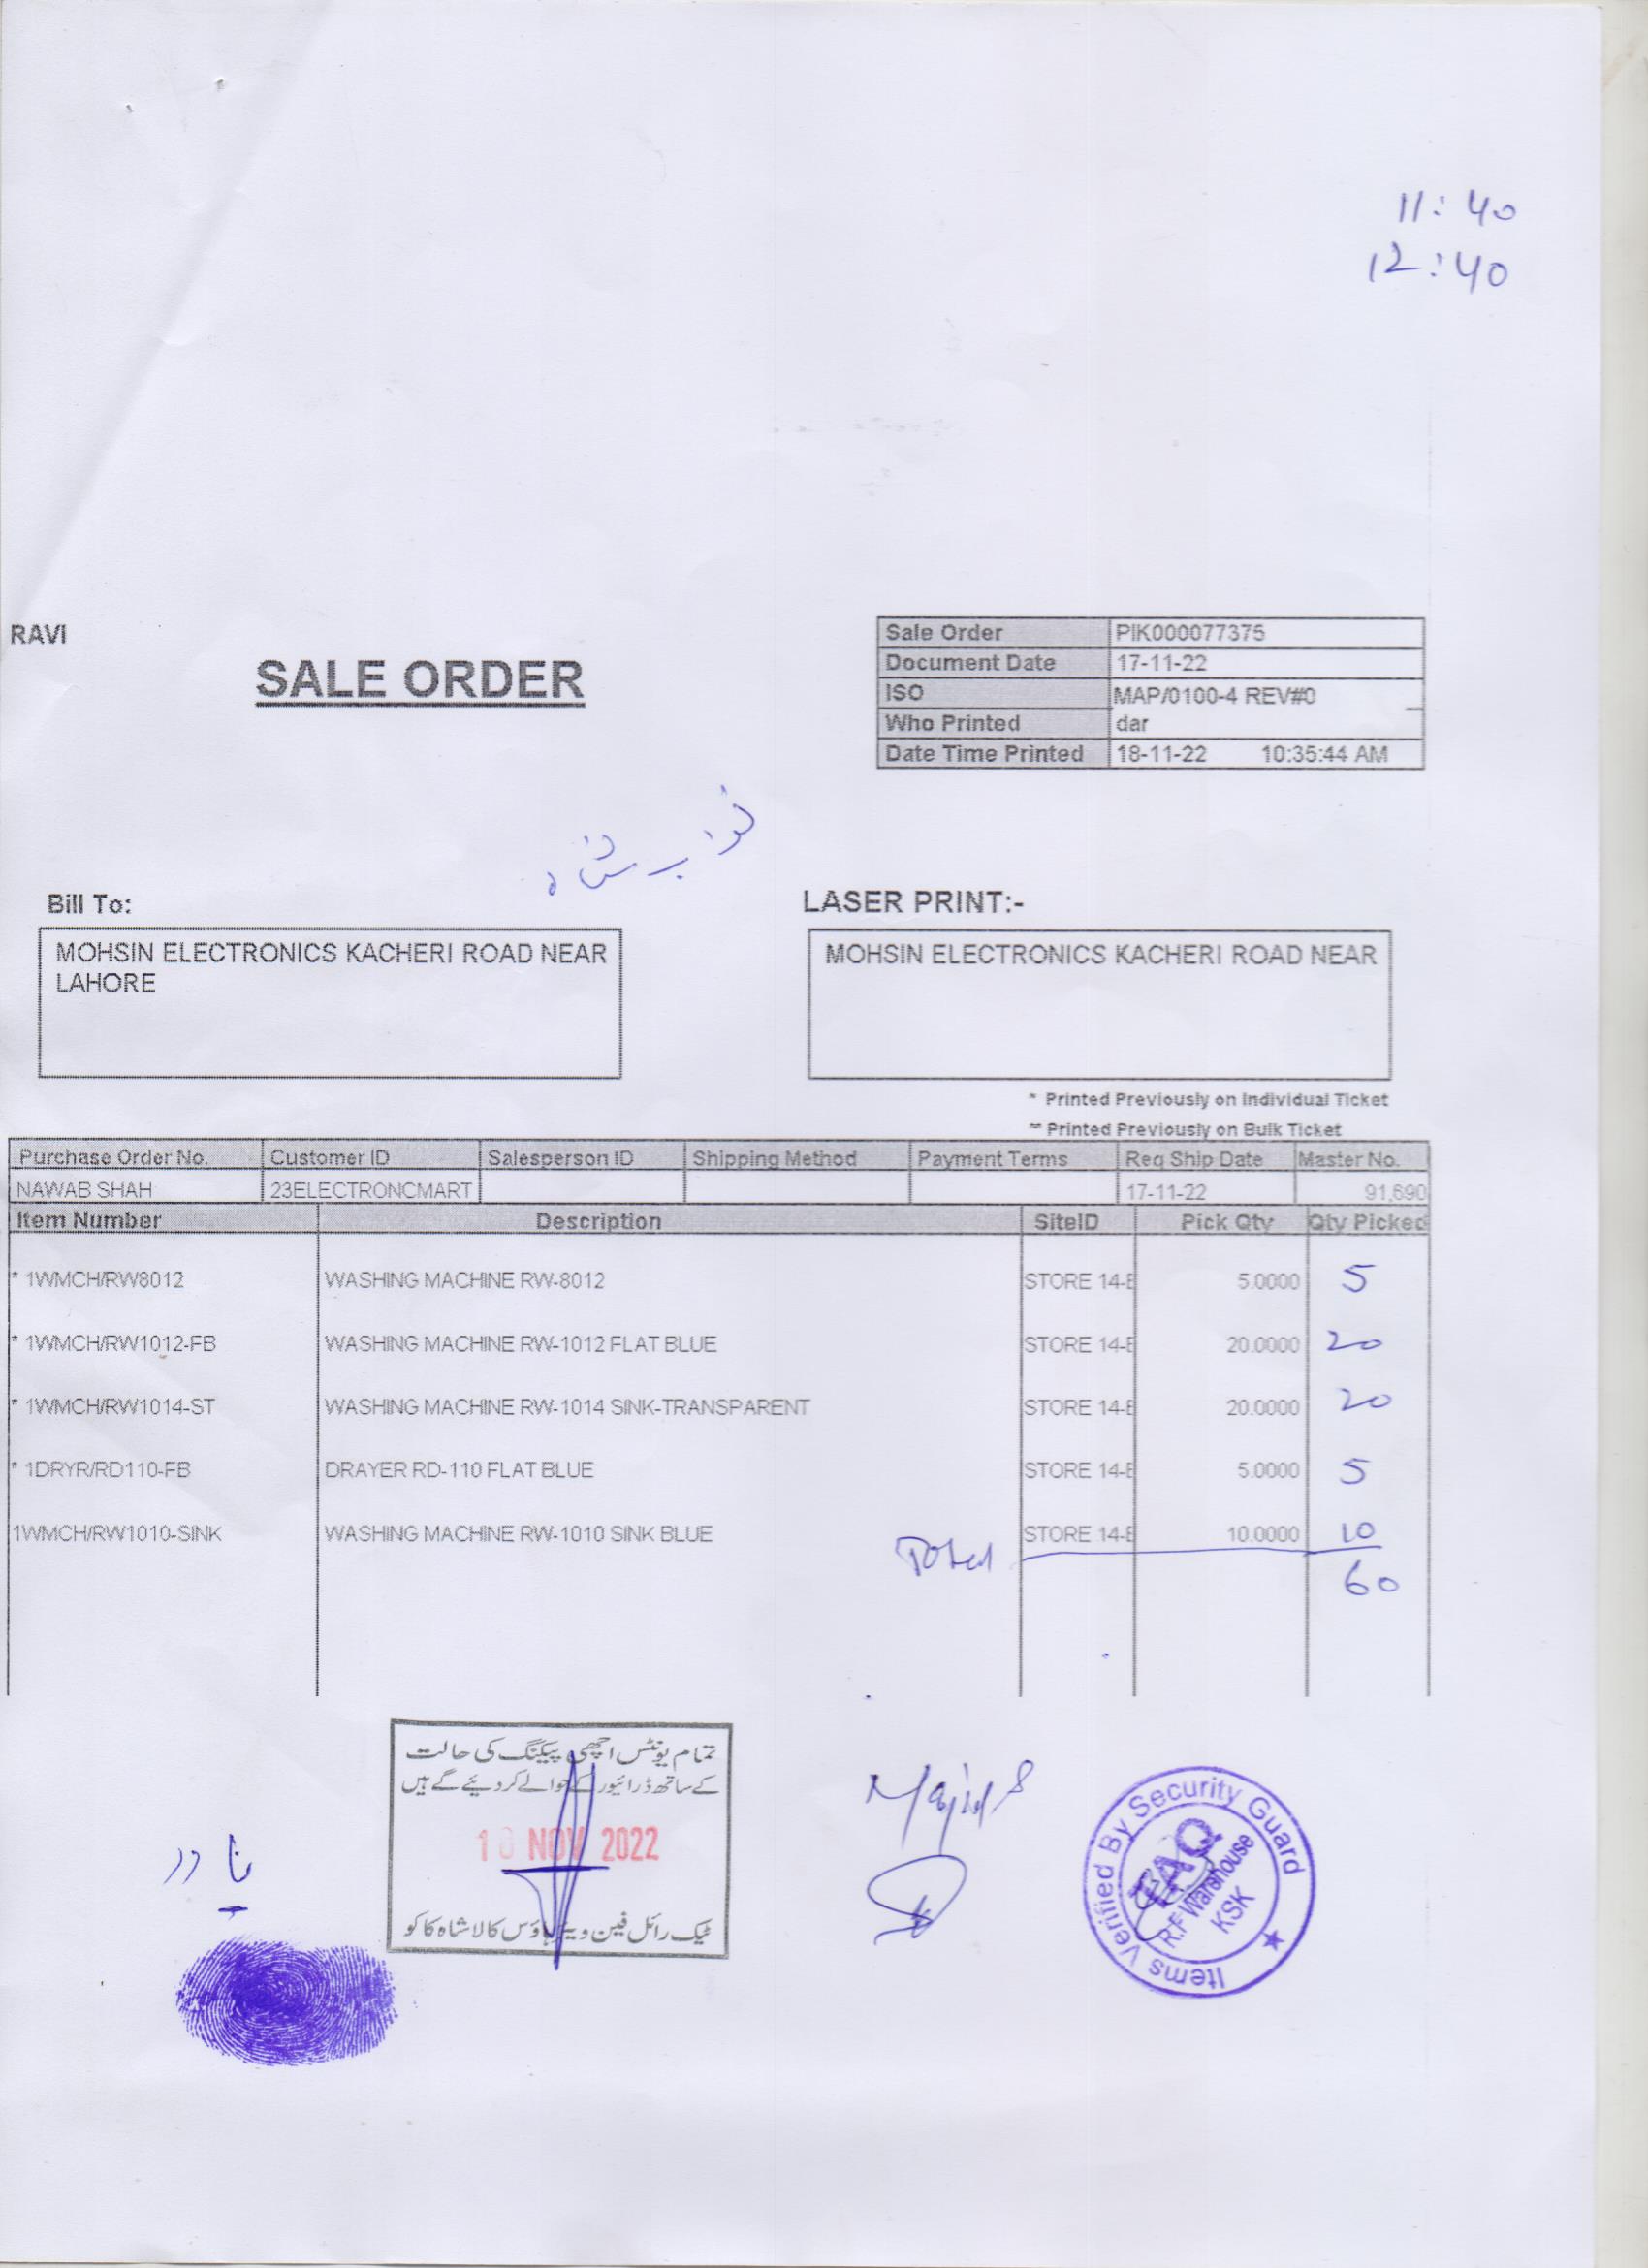 11:40
12:40
RAVI
SALE ORDER
Sale Order PIK000077375
Document Date 17-11-22
ISO MAP/0100-4 REV#0
Who Printed dar
Date Time Printed 18-11-22 10:35:44 AM
نواب شاہ
Bill To:
MOHSIN ELECTRONICS KACHERI ROAD NEAR
LAHORE
LASER PRINT:-
MOHSIN ELECTRONICS KACHERI ROAD NEAR
* Printed Previously on Individual Ticket
** Printed Previously on Bulk Ticket
Purchase Order No. Customer ID Salesperson ID Shipping Method Payment Terms Req Ship Date Master No.
NAWAB SHAH 23ELECTRONCMART 17-11-22 91,690
Item Number Description SiteID Pick Qty Qty Picked
* 1WMCH/RW8012 WASHING MACHINE RW-8012 STORE 14-E 5.0000 5
* 1WMCH/RW1012-FB WASHING MACHINE RW-1012 FLAT BLUE STORE 14-E 20.0000 20
* 1WMCH/RW1014-ST WASHING MACHINE RW-1014 SINK-TRANSPARENT STORE 14-E 20.0000 20
* 1DRYR/RD110-FB DRAYER RD-110 FLAT BLUE STORE 14-E 5.0000 5
1WMCH/RW1010-SINK WASHING MACHINE RW-1010 SINK BLUE STORE 14-E 10.0000 10
Total 60
تمام یونٹس اچھی پیکنگ کی حالت
کے ساتھ ڈرائیور کے حوالے کر دیئے گے ہیں
NOV 2022
ٹیک رائل فین ویئر ہاؤس کالا شاہ کاکو
نادر
Majid
Items Verified By Security Guard
R.F Warehouse
KSK